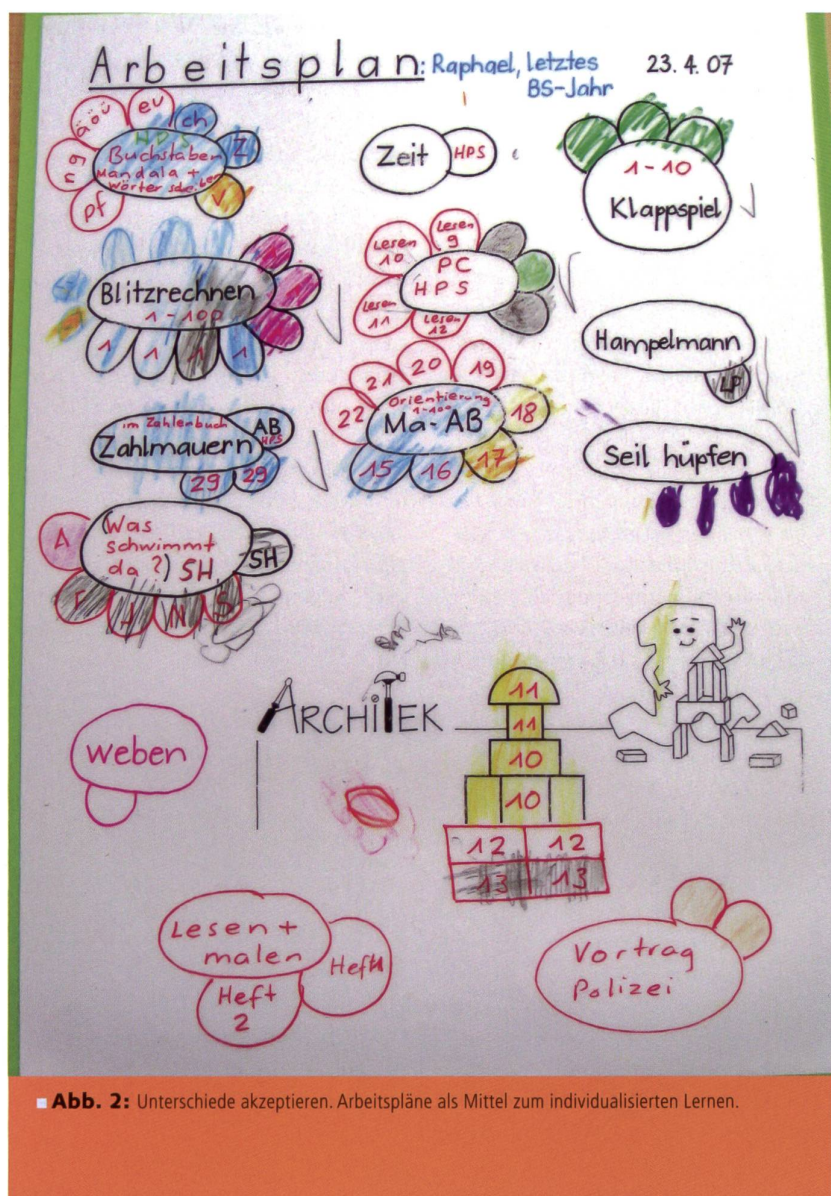 Arbeitsplan: Raphael, letztes
BS-Jahr
23.4.07
äöü
eu
ch
Z
ng
HPS
Buchstaben
Mandala +
Wörter schreiben
pf
V
Zeit
HPS
1-10
Klappspiel
Blitzrechnen
1-100
1
1
1
1
Lesen
10
Lesen
9
PC
HPS
Lesen
11
Lesen
12
Hampelmann
LP
im Zahlenbuch
Zahlmauern
AB
HPS
29
29
22
21
20
19
Orientierung
1-100
Ma-AB
18
15
16
17
Seil hüpfen
(Was
schwimmt
da?) SH
SH
A
H
N
S
weben
ARCHiTEK
11
11
10
10
12
12
13
13
Lesen +
malen
Heft 1
Heft
2
Vortrag
Polizei
Abb. 2: Unterschiede akzeptieren. Arbeitspläne als Mittel zum individualisierten Lernen.